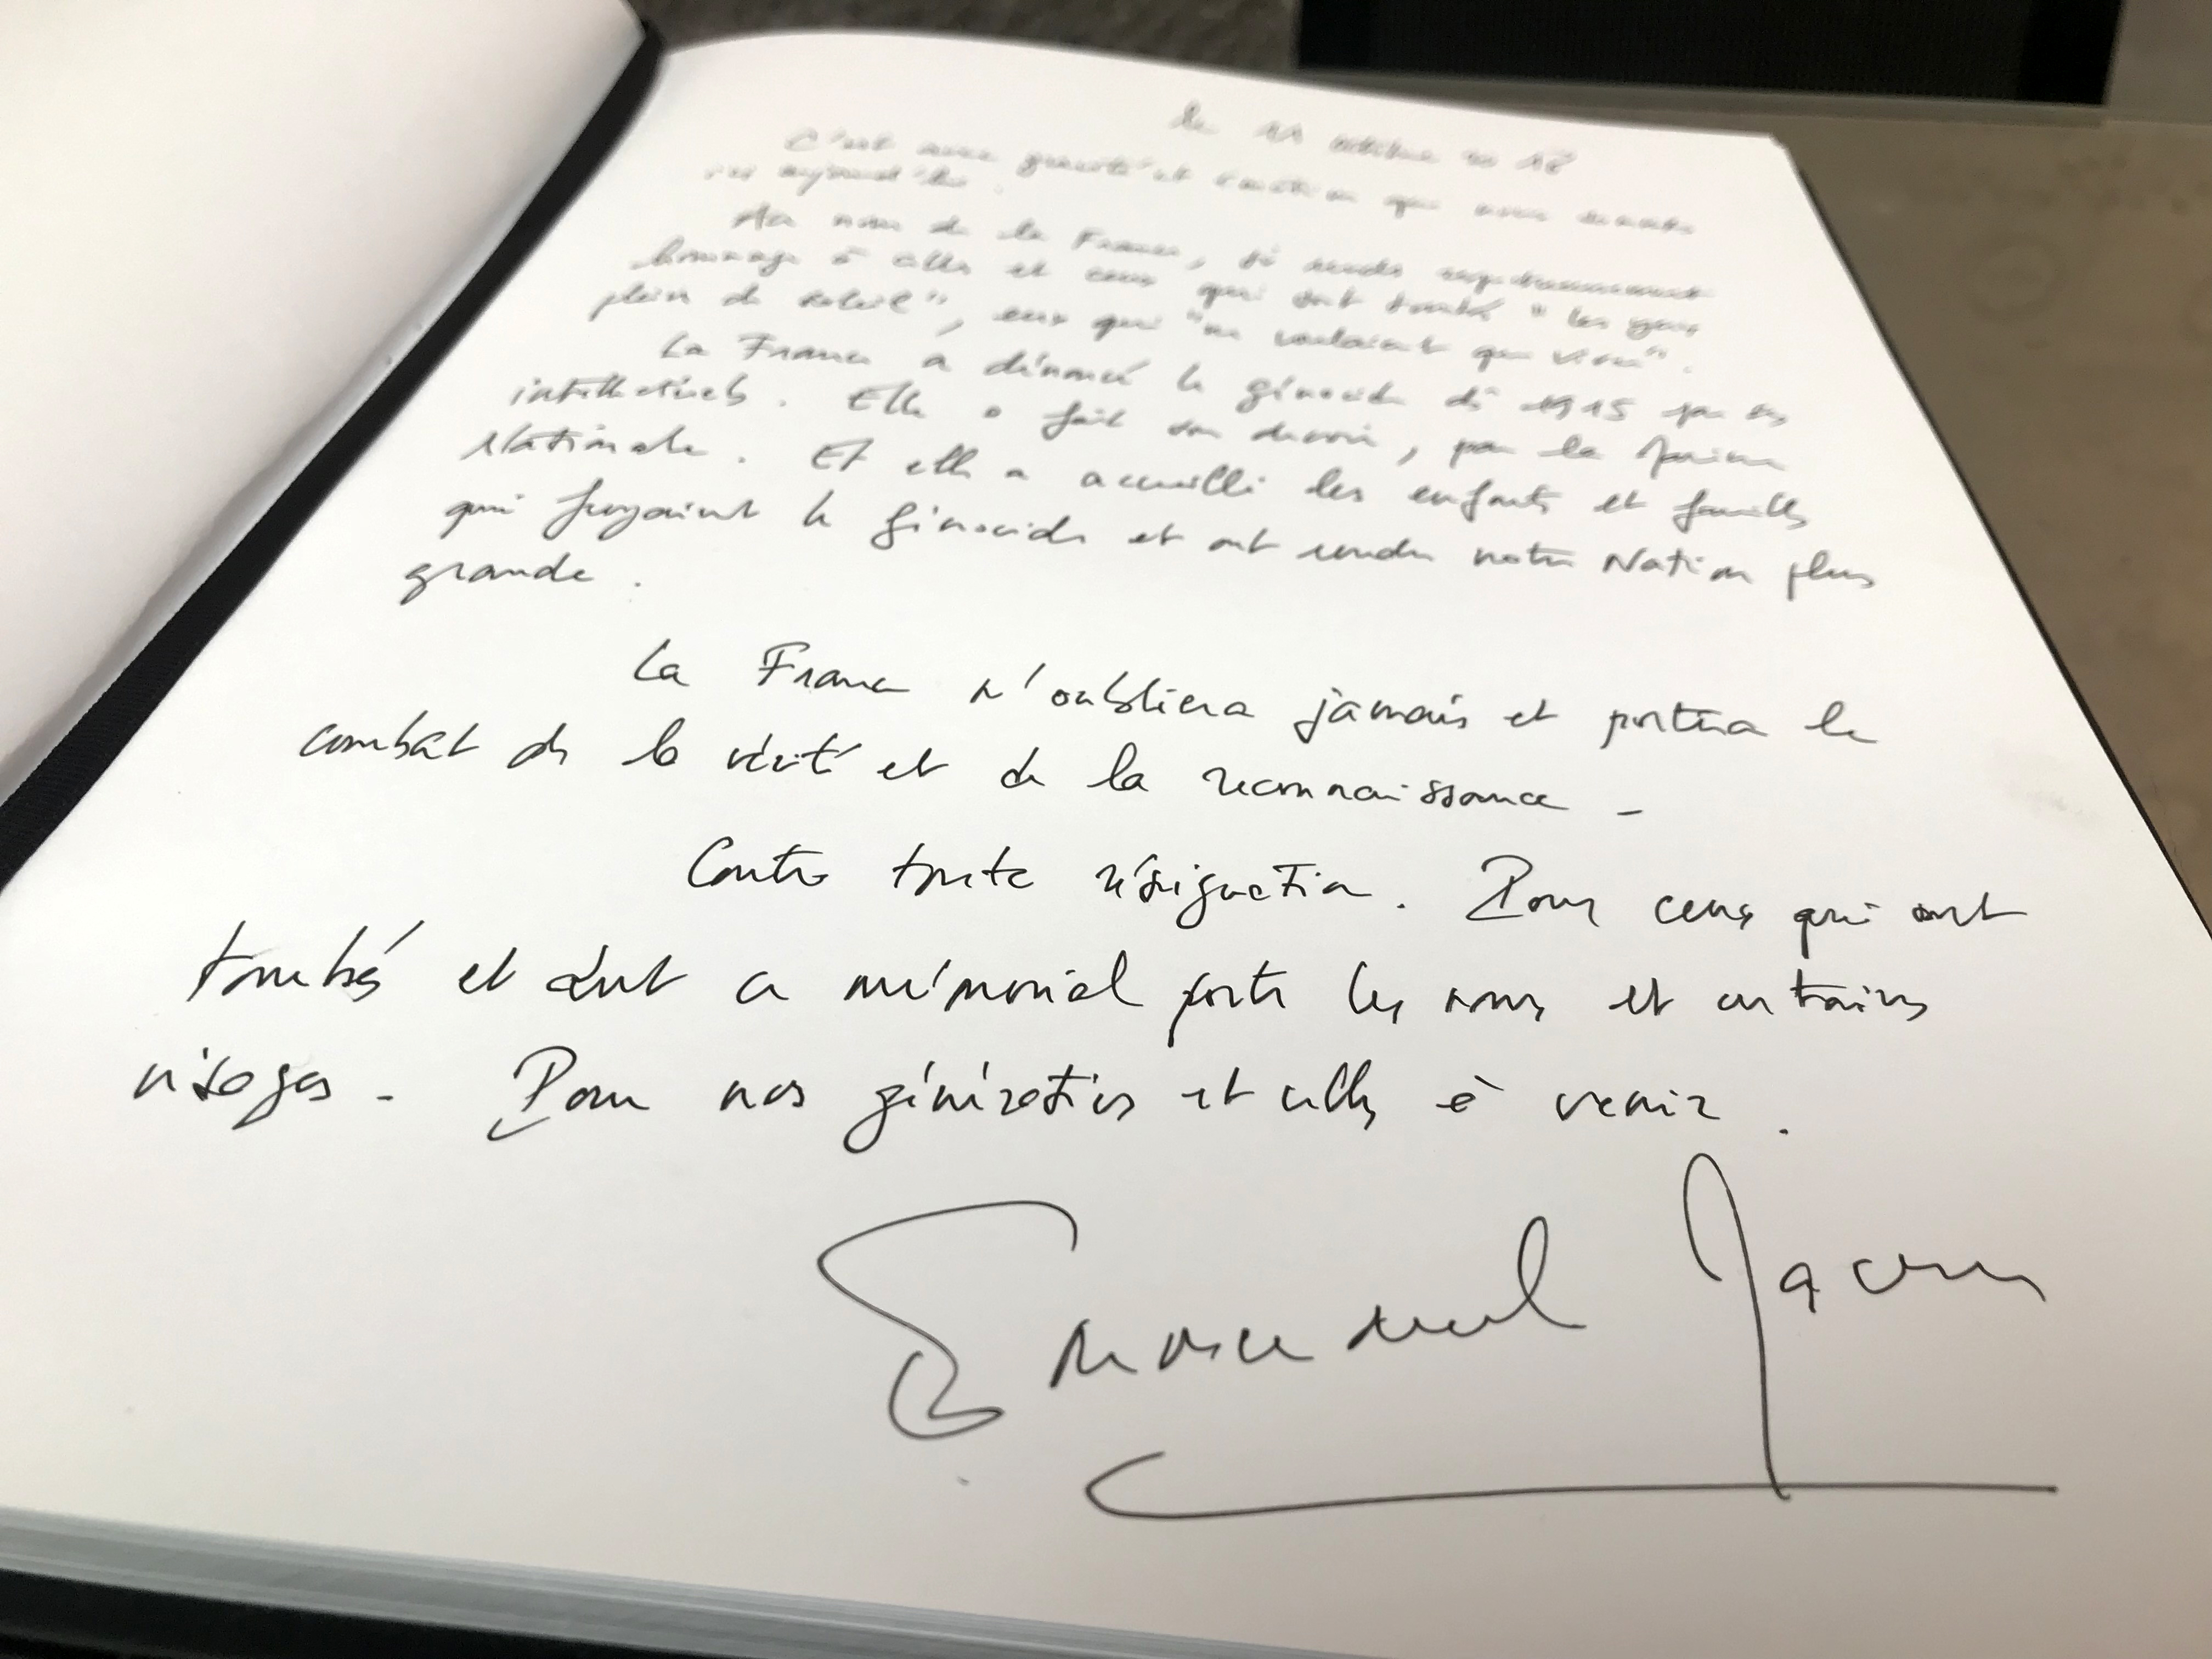 le 11 octobre 2018
C'est avec gravité et émotion que nous sommes
ici aujourd'hui.
Au nom de la France, je rends
hommage à celles et ceux qui sont tombés "les yeux
plein de soleil", eux qui "ne voulaient que vivre".
La France a dénoncé le génocide dès 1915 par ses
intellectuels. Elle a fait son devoir, par la Marine
Nationale. Et elle a accueilli les enfants et familles
qui fuyaient le génocide et ont rendu notre Nation plus
grande.
La France n'oubliera jamais et portera le
combat de la vérité et de la reconnaissance -
Contre toute résignation. Pour ceux qui sont
tombés et dont ce mémorial porte les noms et certains
visages - Pour nos générations et celles à venir.
Emmanuel Macron